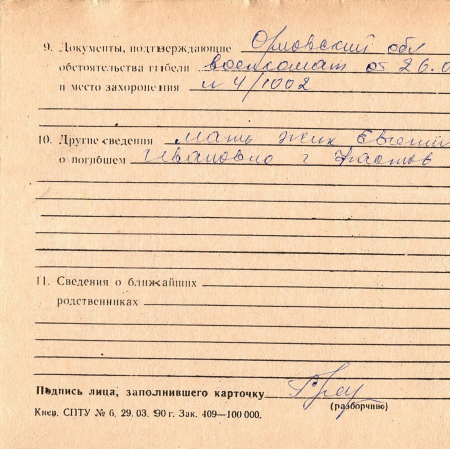 9. Документы, подтверждающие Орловский обл
обстоятельства гибели военкомат от 26.0
и место захоронения и 4/1002
10. Другие сведения мать Евгения
о погибшем Ивановна г
11. Сведения о ближайших
родственниках
Подпись лица, заполнившего карточку
(разборчиво)
Киев. СПТУ № 6. 29. 03. 90 г. Зак. 409—100 000.